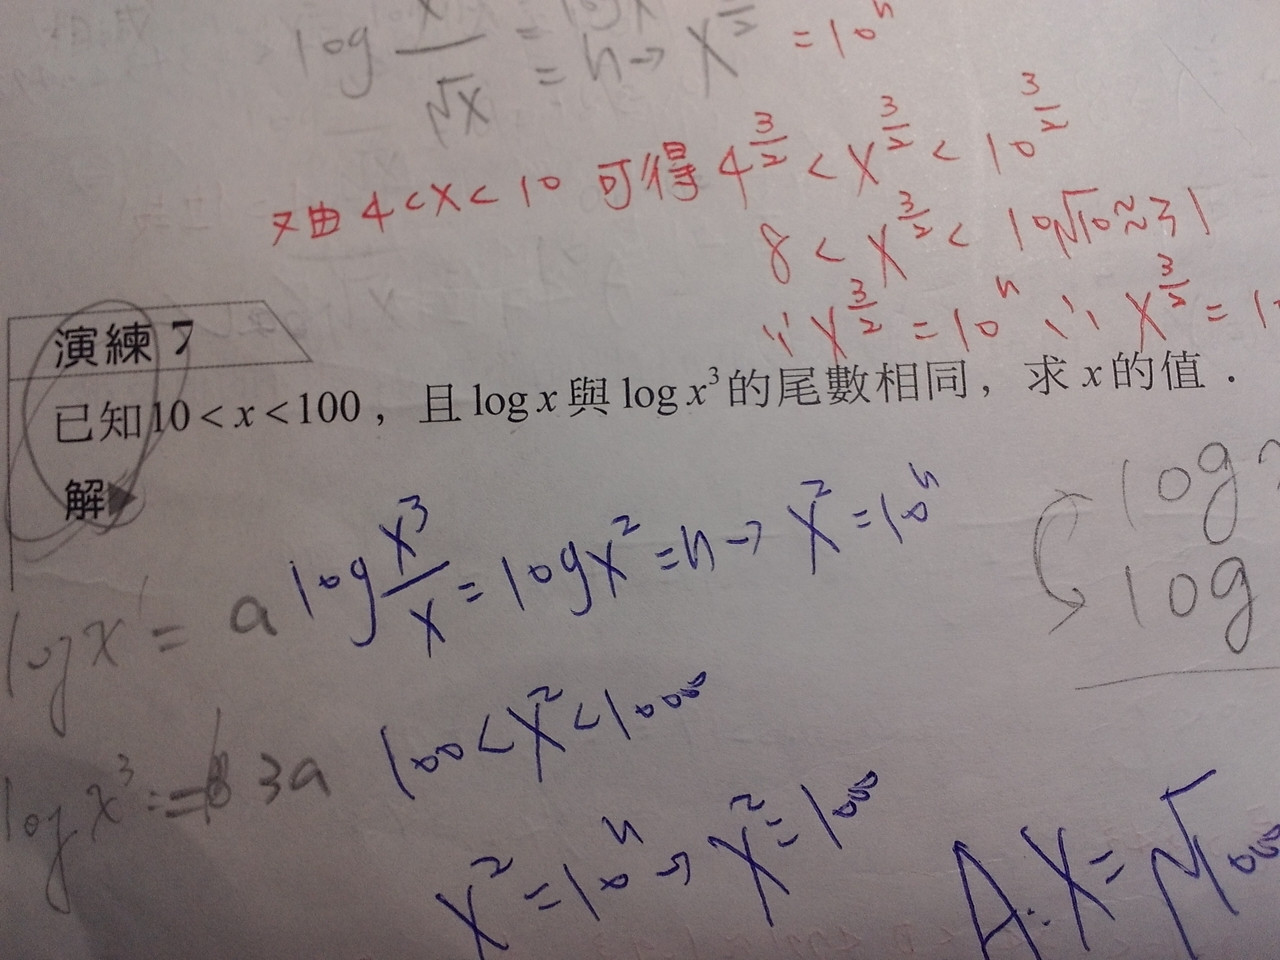 log x/√x = log x^(3/2) = n → x^(3/2) = 10^n
又由 4 < x < 10 可得 4^(3/2) < x^(3/2) < 10^(3/2)
8 < x^(3/2) < 10√10 ≈ 31
∵ x^(3/2) = 10^n ∴ x^(3/2) =
演練 7
已知10 < x < 100，且 log x 與 log x³ 的尾數相同，求 x 的值．
解▶
log x³/x = log x² = n → x² = 10^n
log x = a
100 < x² < 10000
log x³ = 3a
x² = 10^n → x² = 1000
A: x = √1000
log
log